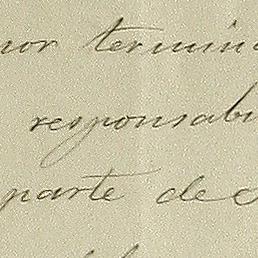 por termin
responsabi
parte de